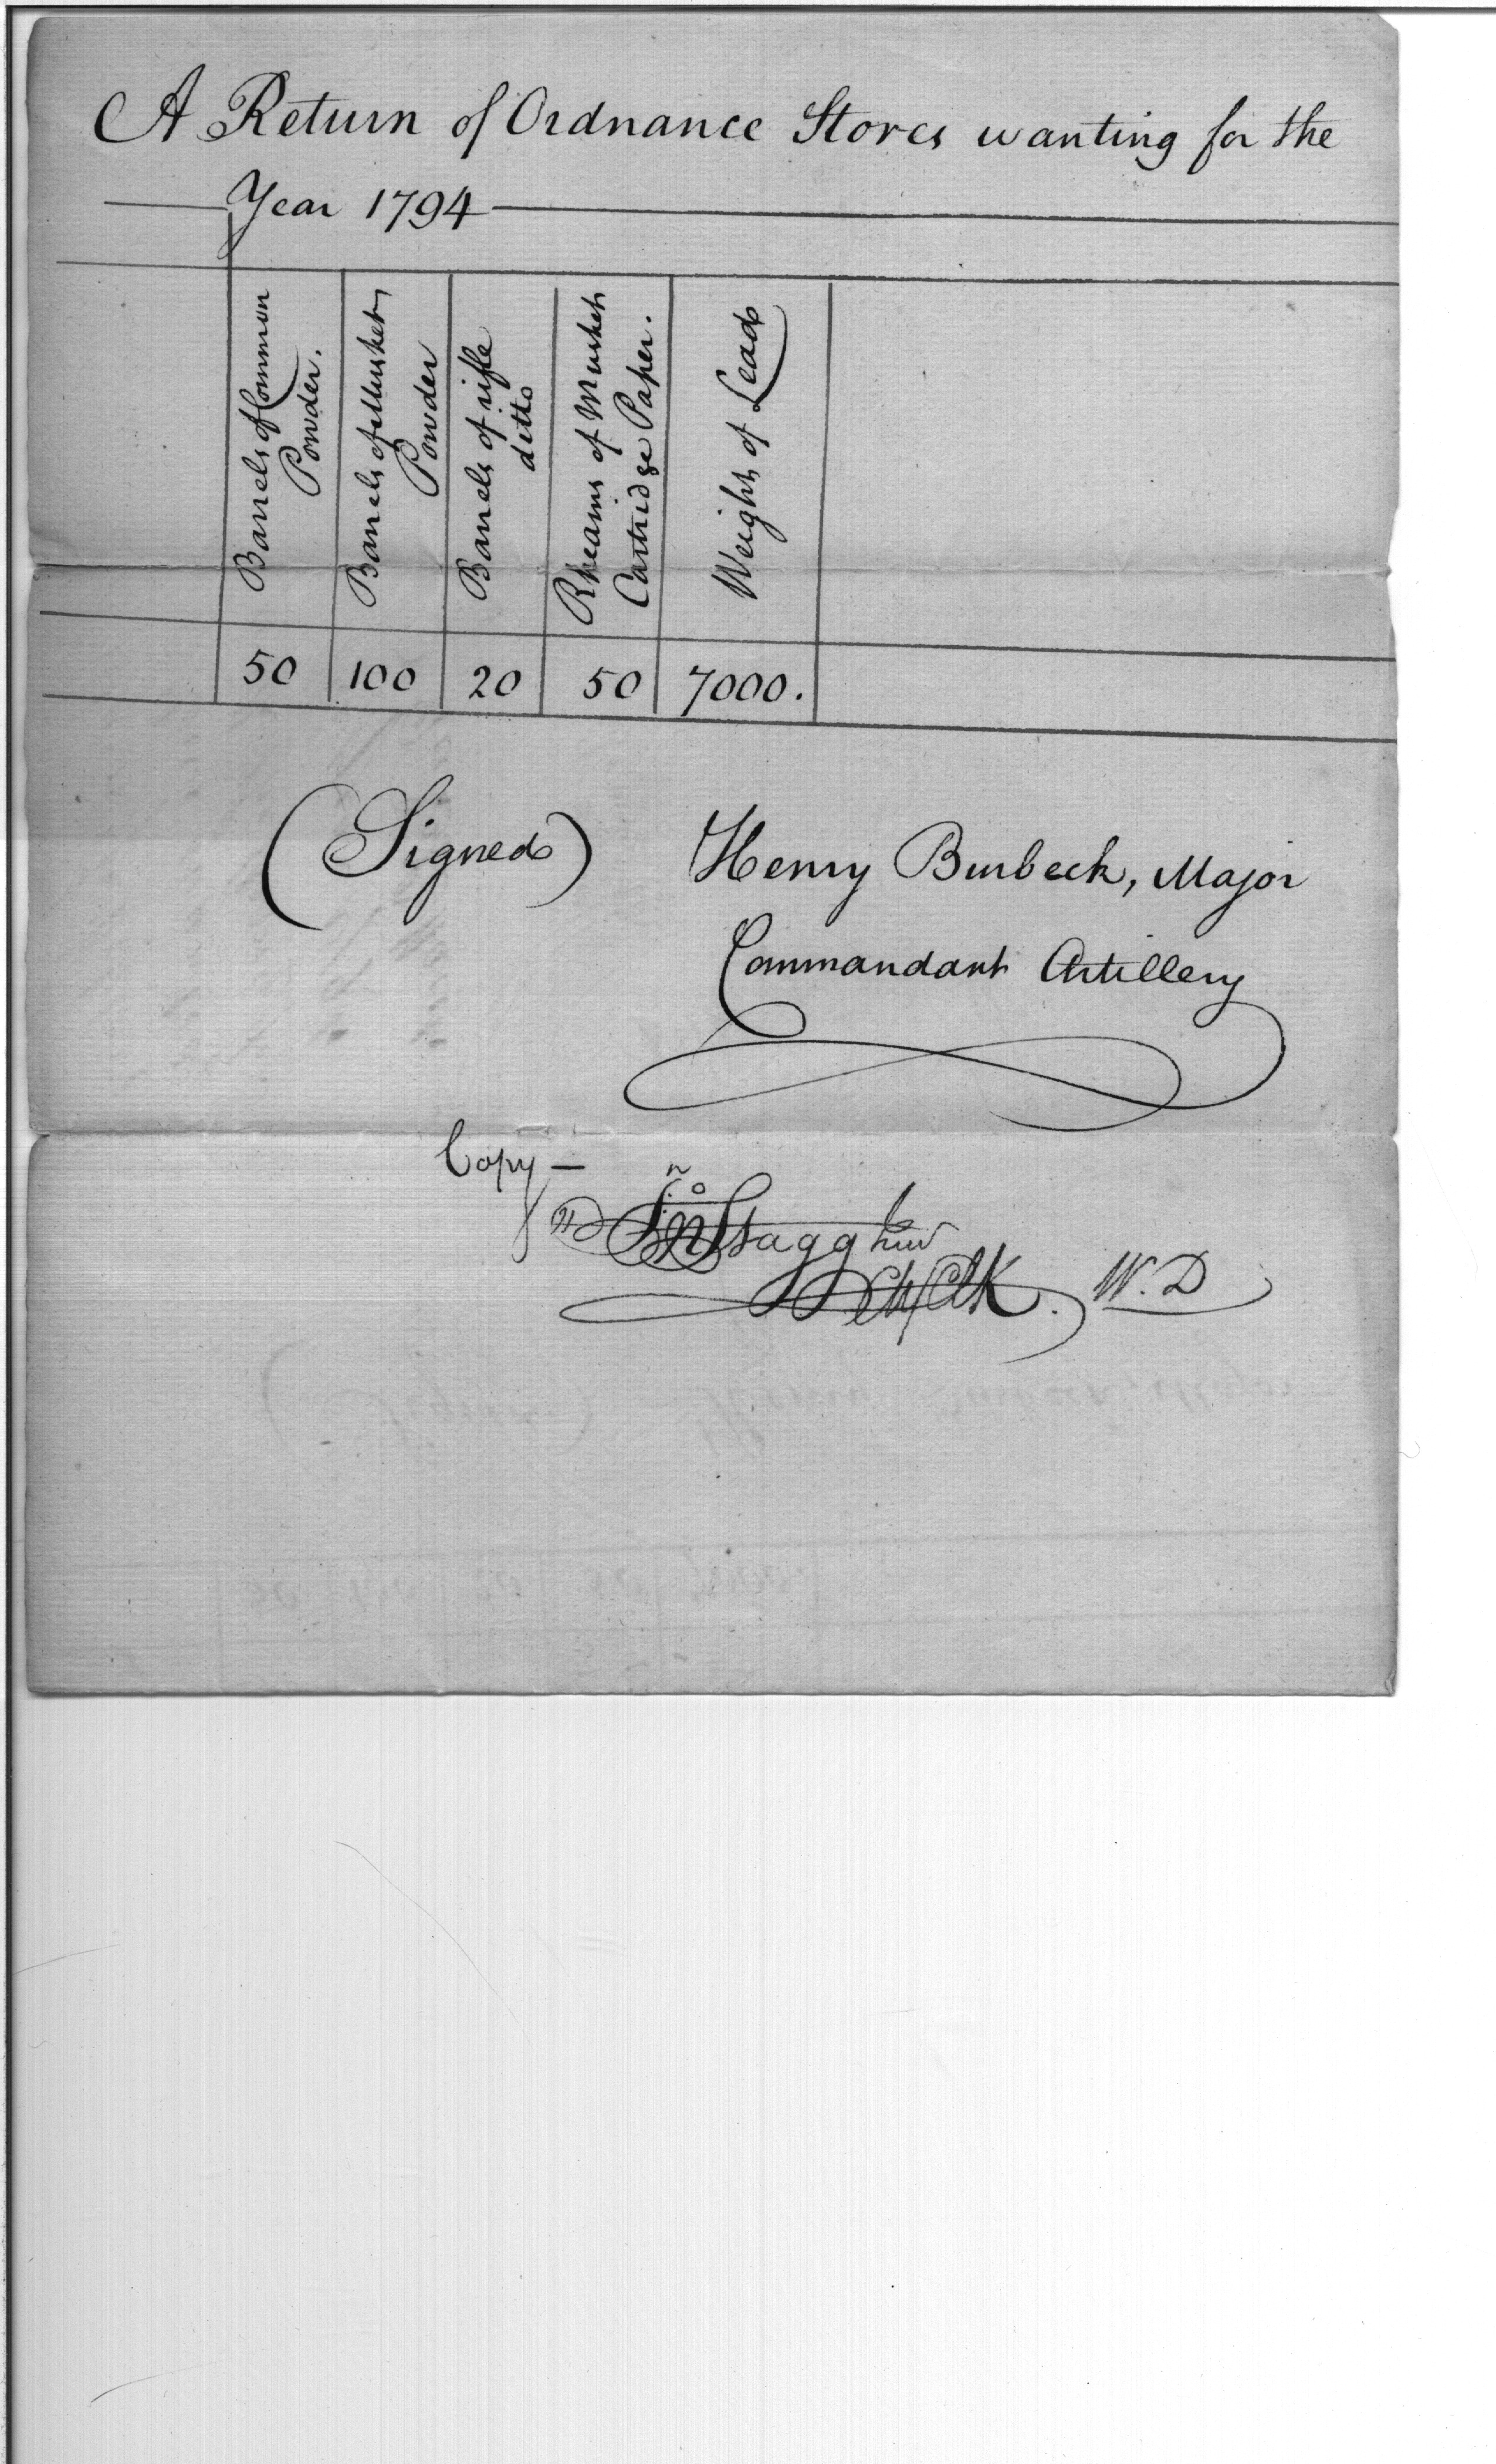 A Return of Ordnance Stores wanting for the
Year 1794
Barrels of Common
Powder.
Barrels of Musket
Powder
Barrels of rifle
ditto
Rheams of Musket
Cartridge Paper.
Weight of Lead
50 100 20 50 7000.
(Signed) Henry Burbeck, Major
Commandant Artillery
Copy —
Jno Stagg Junr
Ch Clk. W. D